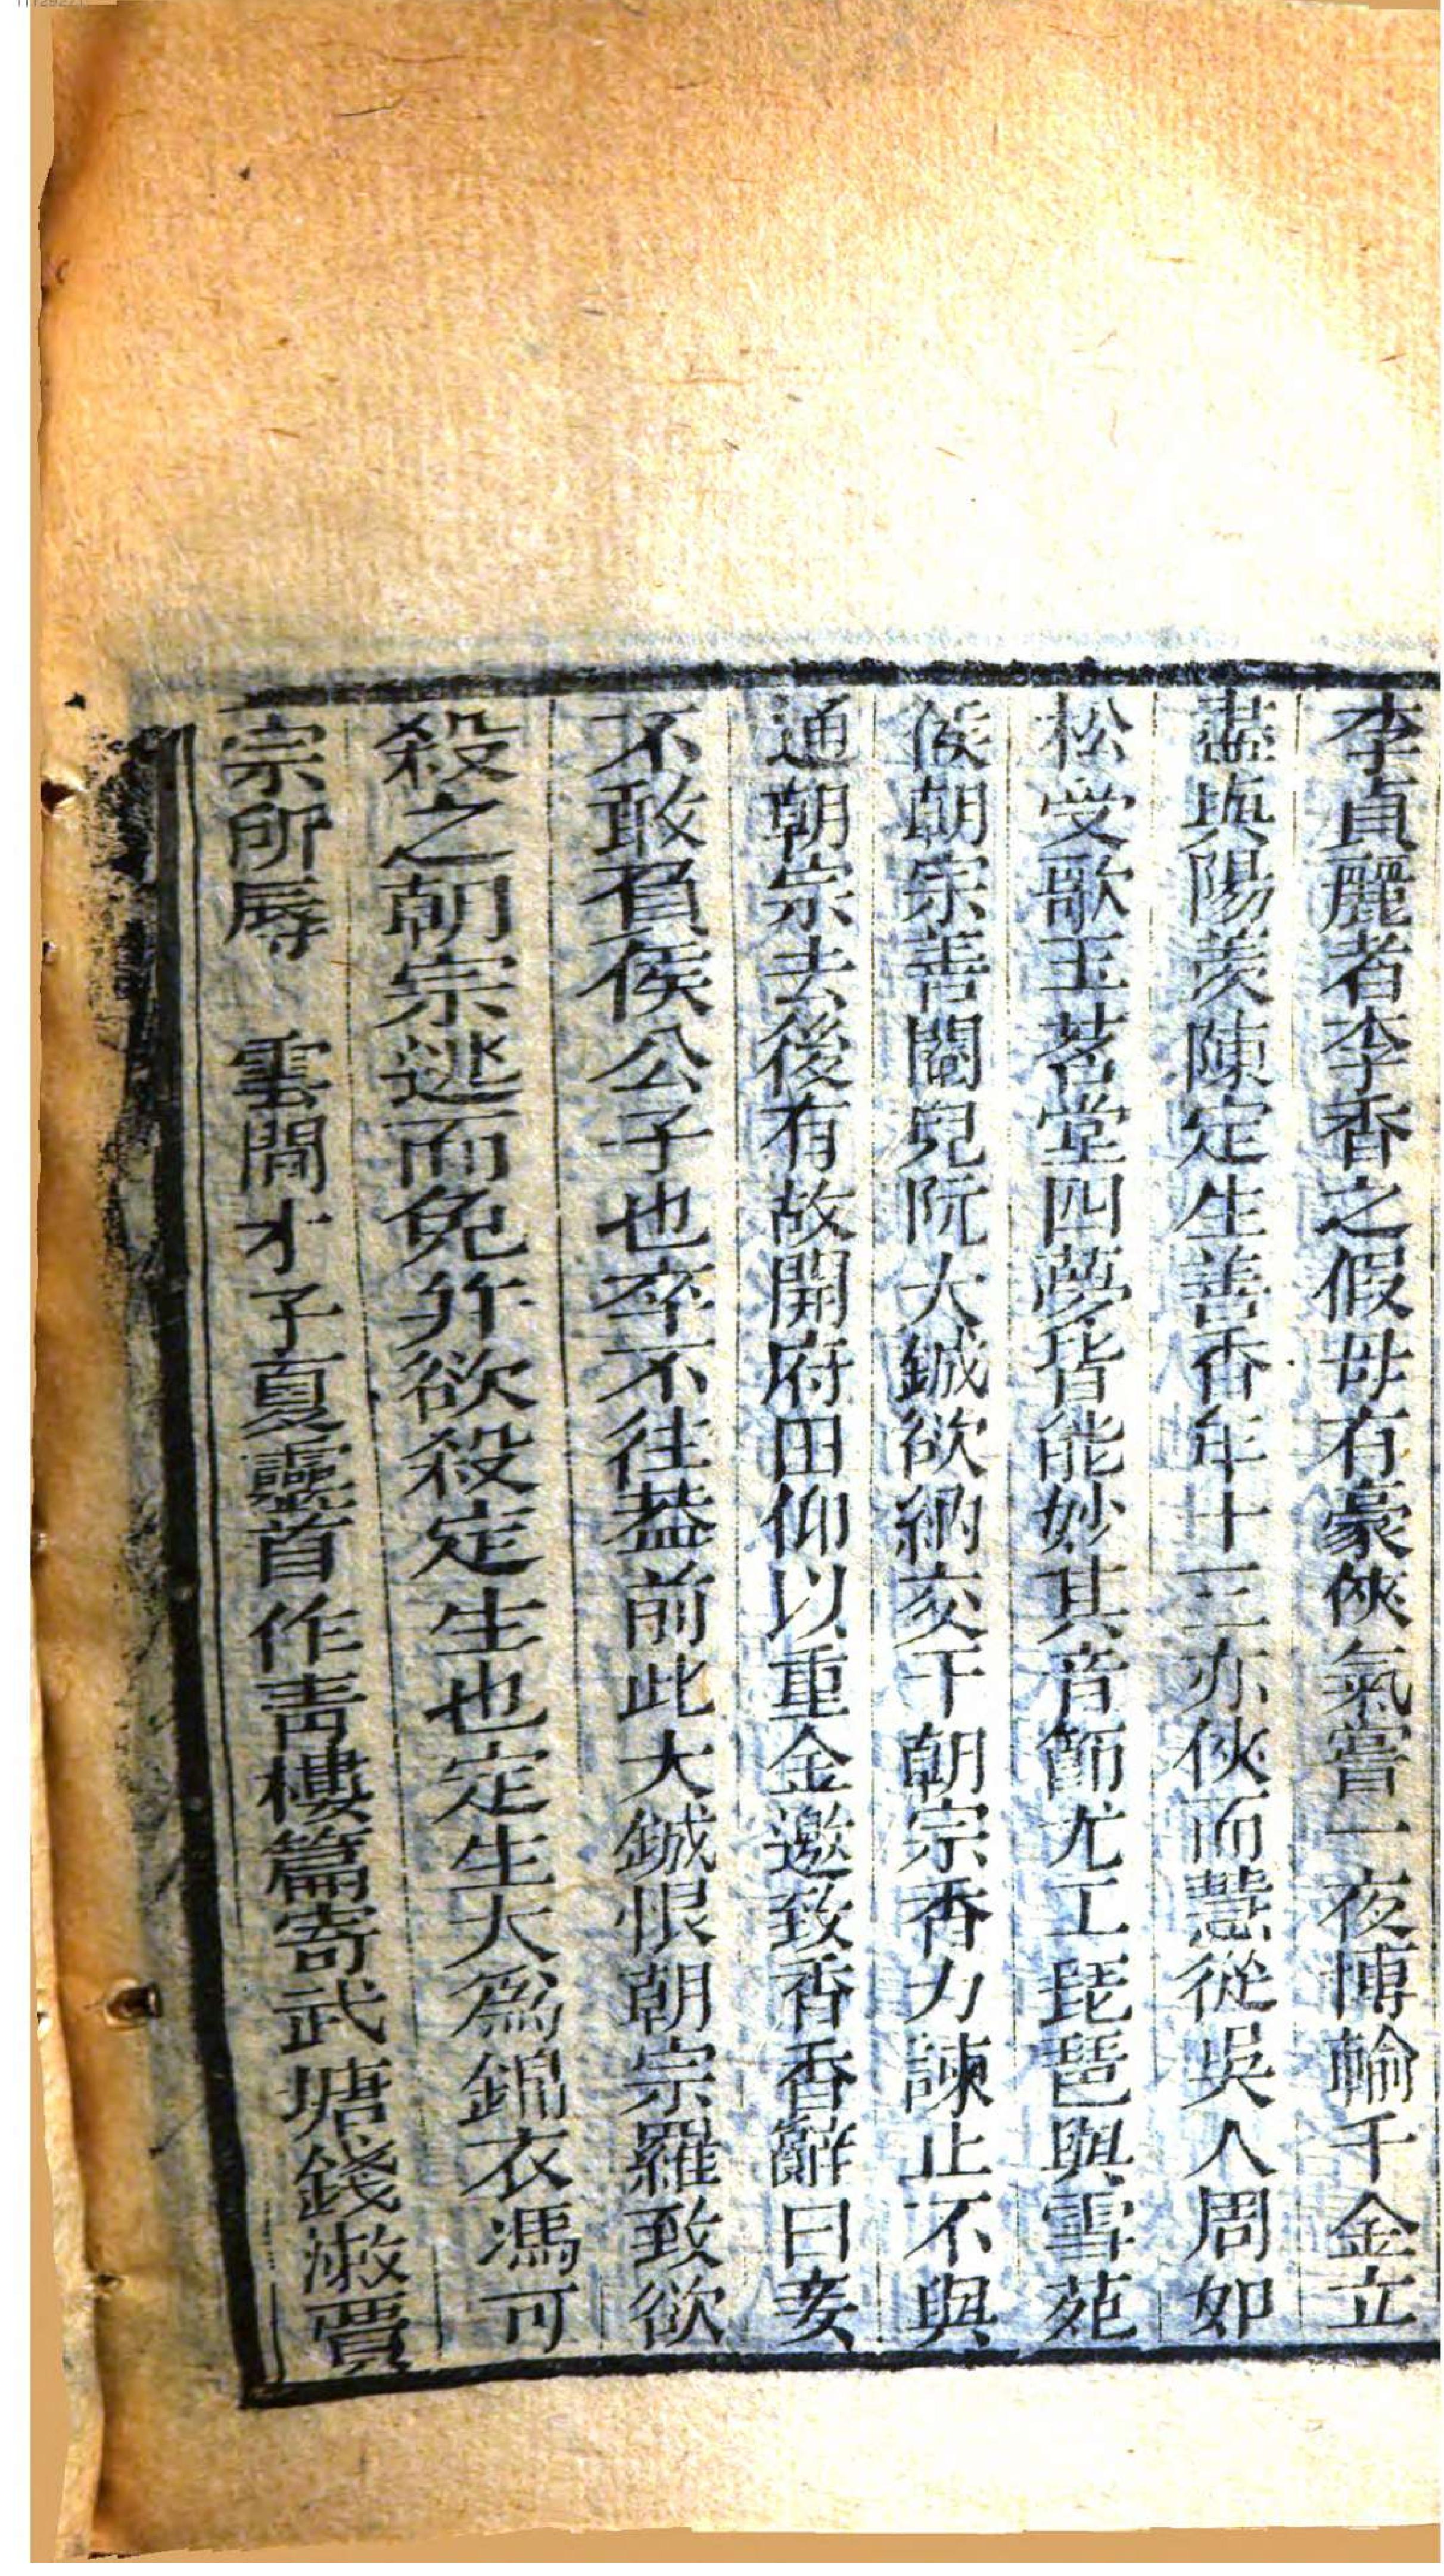 李貞麗者李香之假母有豪俠氣嘗一夜博輸千金立
盡與陽羨陳定生善香年十三亦俠而慧從吳人周如
松受歌玉茗堂四夢皆能妙其音節尤工琵琶與雪苑
侯朝宗善閹兒阮大鋮欲納交于朝宗香力諫止不與
通朝宗去後有故開府田仰以重金邀致香香辭曰妾
不敢負侯公子也卒不往葢前此大鋮恨朝宗羅致欲
殺之朝宗逃而免幷欲殺定生也定生大爲錦衣馮可
宗所辱　雲間才子夏靈首作靑樓篇寄武塘錢漱賈